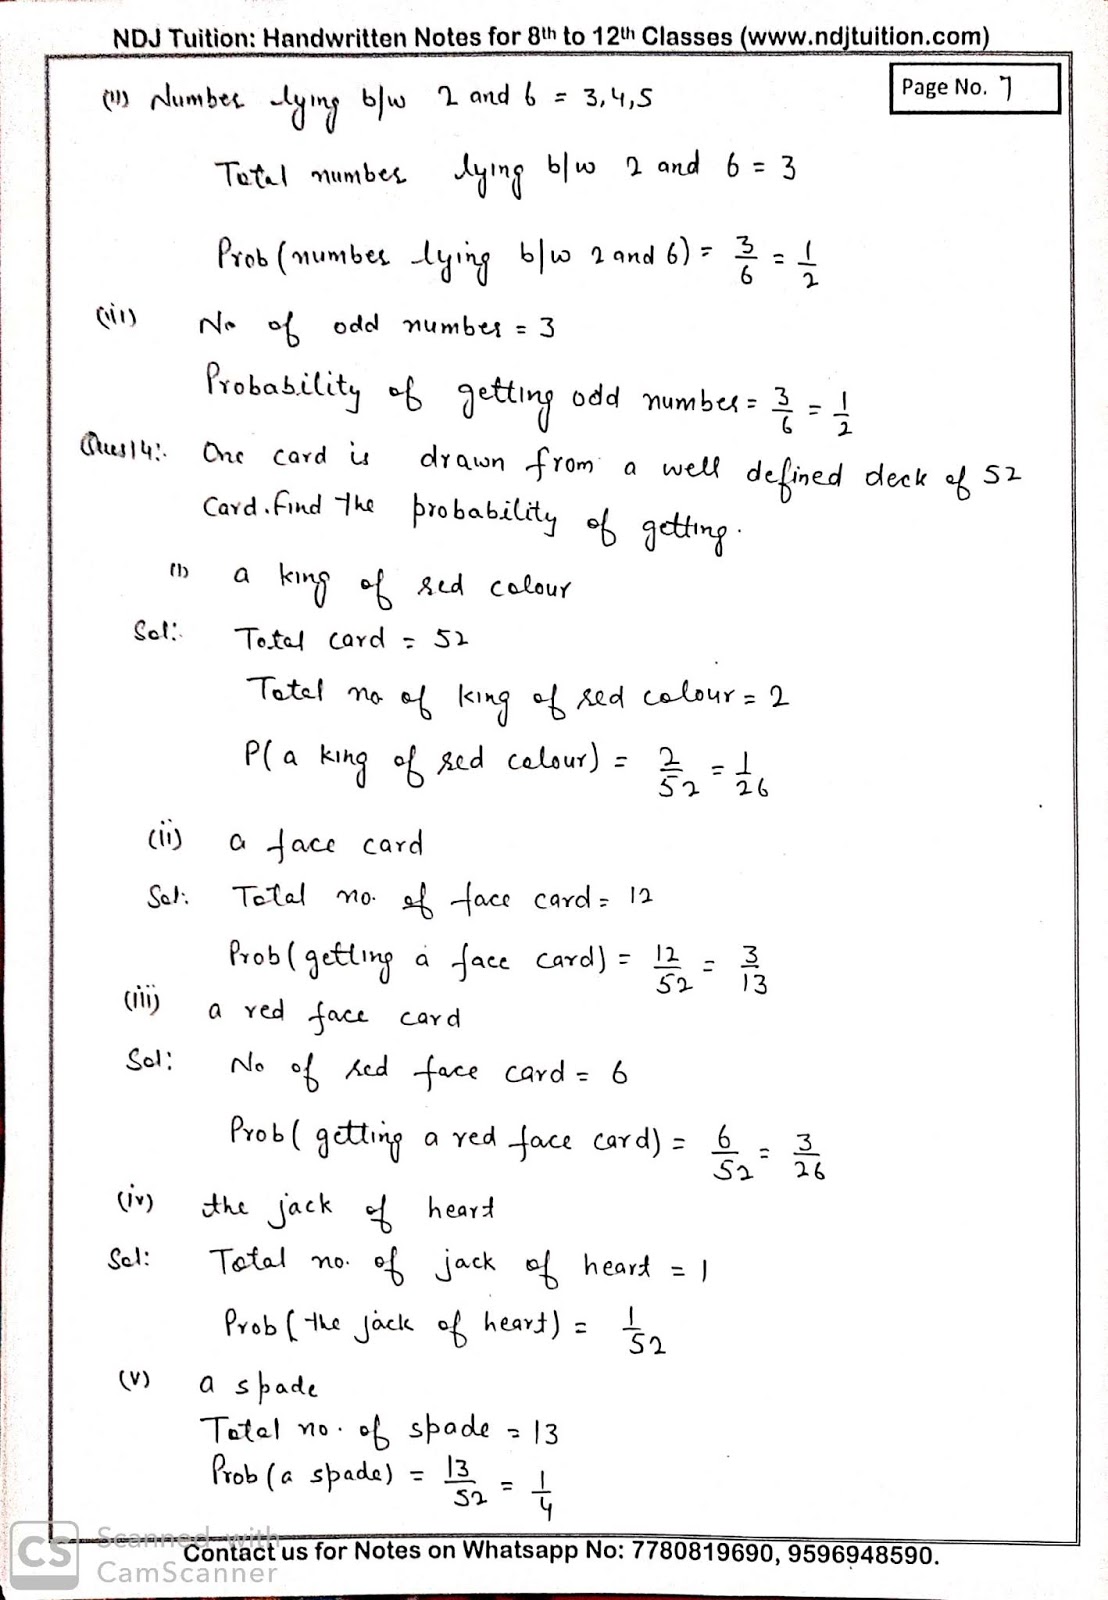 NDJ Tuition: Handwritten Notes for 8th to 12th Classes (www.ndjtuition.com)
Page No. 7
(ii) Number lying b/w 2 and 6 = 3,4,5
Total number lying b/w 2 and 6 = 3
Prob (number lying b/w 2 and 6) = 3/6 = 1/2
(iii) No of odd number = 3
Probability of getting odd number = 3/6 = 1/2
Ques14:. One card is drawn from a well defined deck of 52
Card. find the probability of getting.
(i) a king of red colour
Sol:. Total card = 52
Total no of king of red colour = 2
P(a king of red colour) = 2/52 = 1/26
(ii) a face card
Sol: Total no. of face card = 12
Prob (getting a face card) = 12/52 = 3/13
(iii) a red face card
Sol: No of red face card = 6
Prob ( getting a red face card) = 6/52 = 3/26
(iv) the jack of heart
Sol: Total no. of jack of heart = 1
Prob ( the jack of heart) = 1/52
(v) a spade
Total no. of spade = 13
Prob (a spade) = 13/52 = 1/4
CS Scanned with
CamScanner
Contact us for Notes on Whatsapp No: 7780819690, 9596948590.